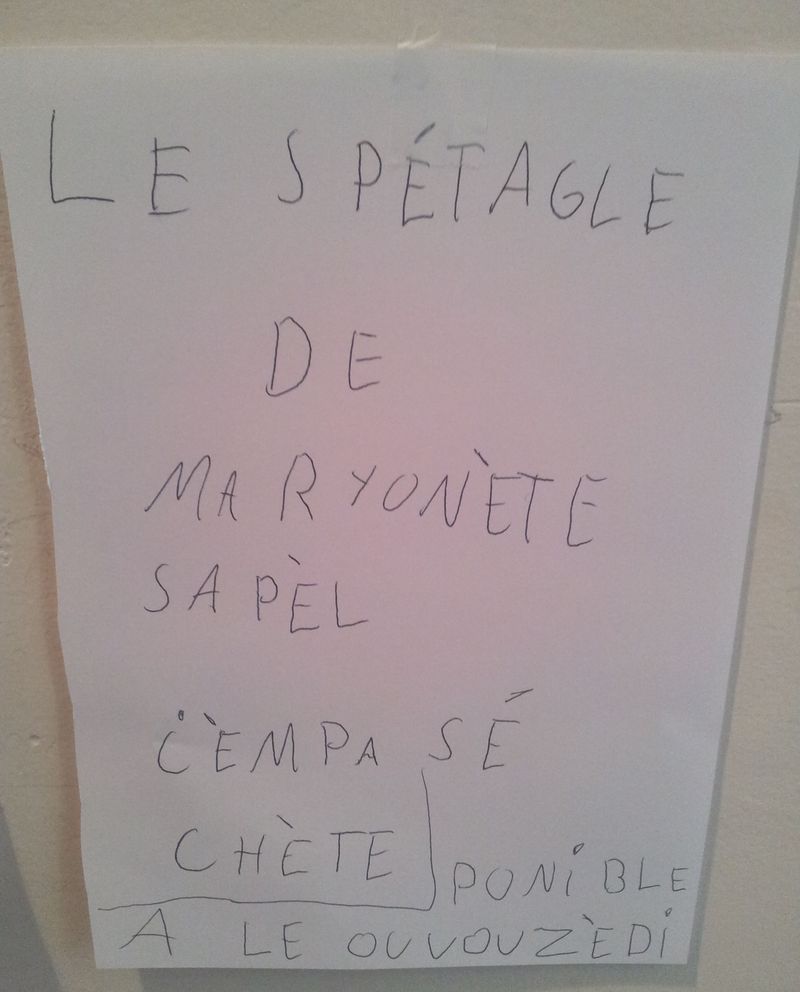 LE SPÉTAGLE
DE
MARYONÈTE
SAPÈL
C'ÈMPA SÉ
CHÈTE
PONiBLE
A LE OUVOUZÈDi